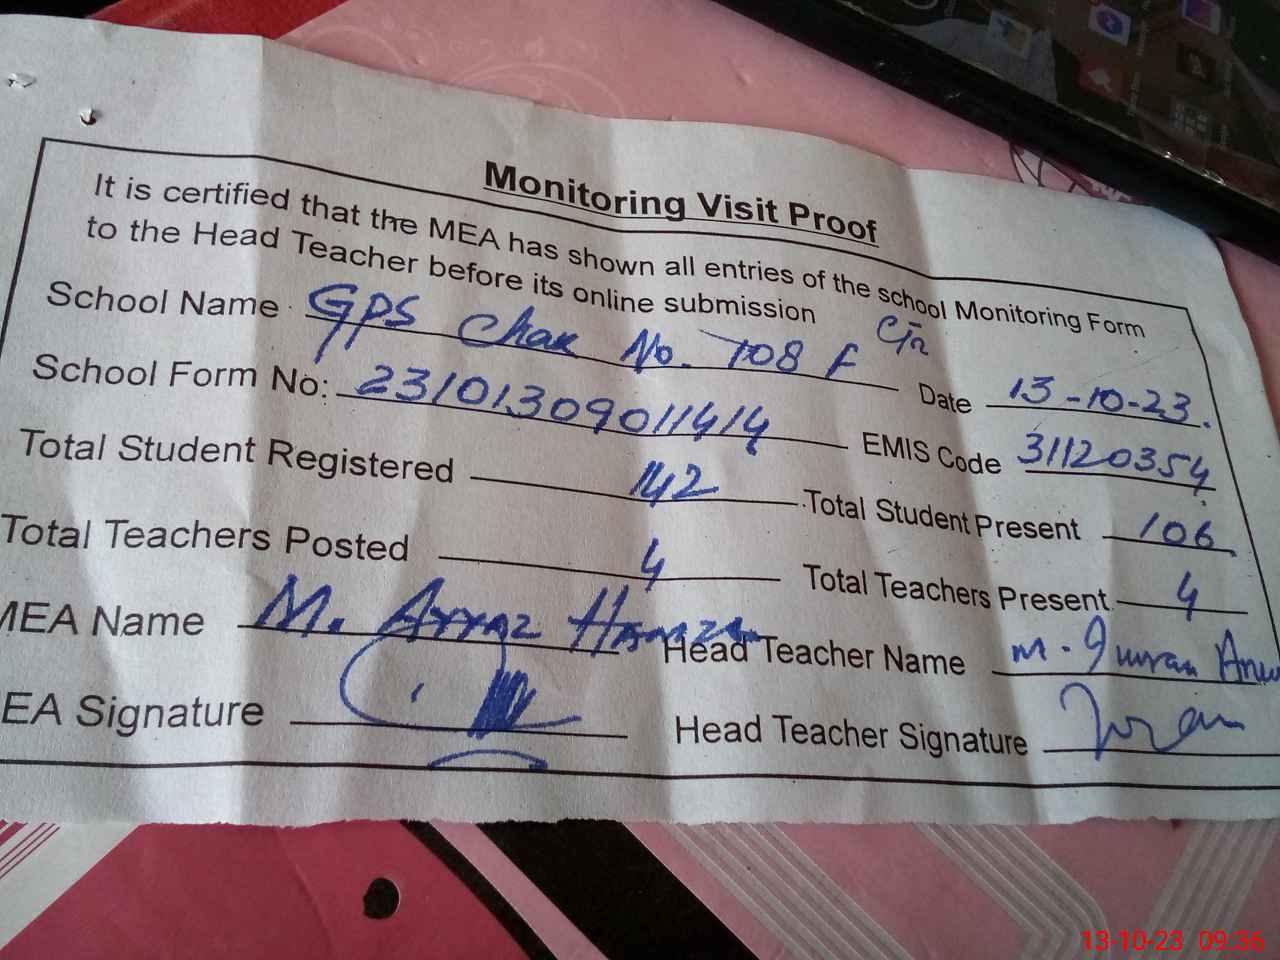 Monitoring Visit Proof
It is certified that the MEA has shown all entries of the school Monitoring Form
to the Head Teacher before its online submission
School Name GPS Chak No. 108 F
Date 13-10-23.
School Form No: 23101309011414
EMIS Code 31120354
Total Student Registered 142
Total Student Present 106
Total Teachers Posted 4
Total Teachers Present 4
MEA Name M. Hamza
Head Teacher Name M. Imran
EA Signature
Head Teacher Signature
13-10-23 09:36